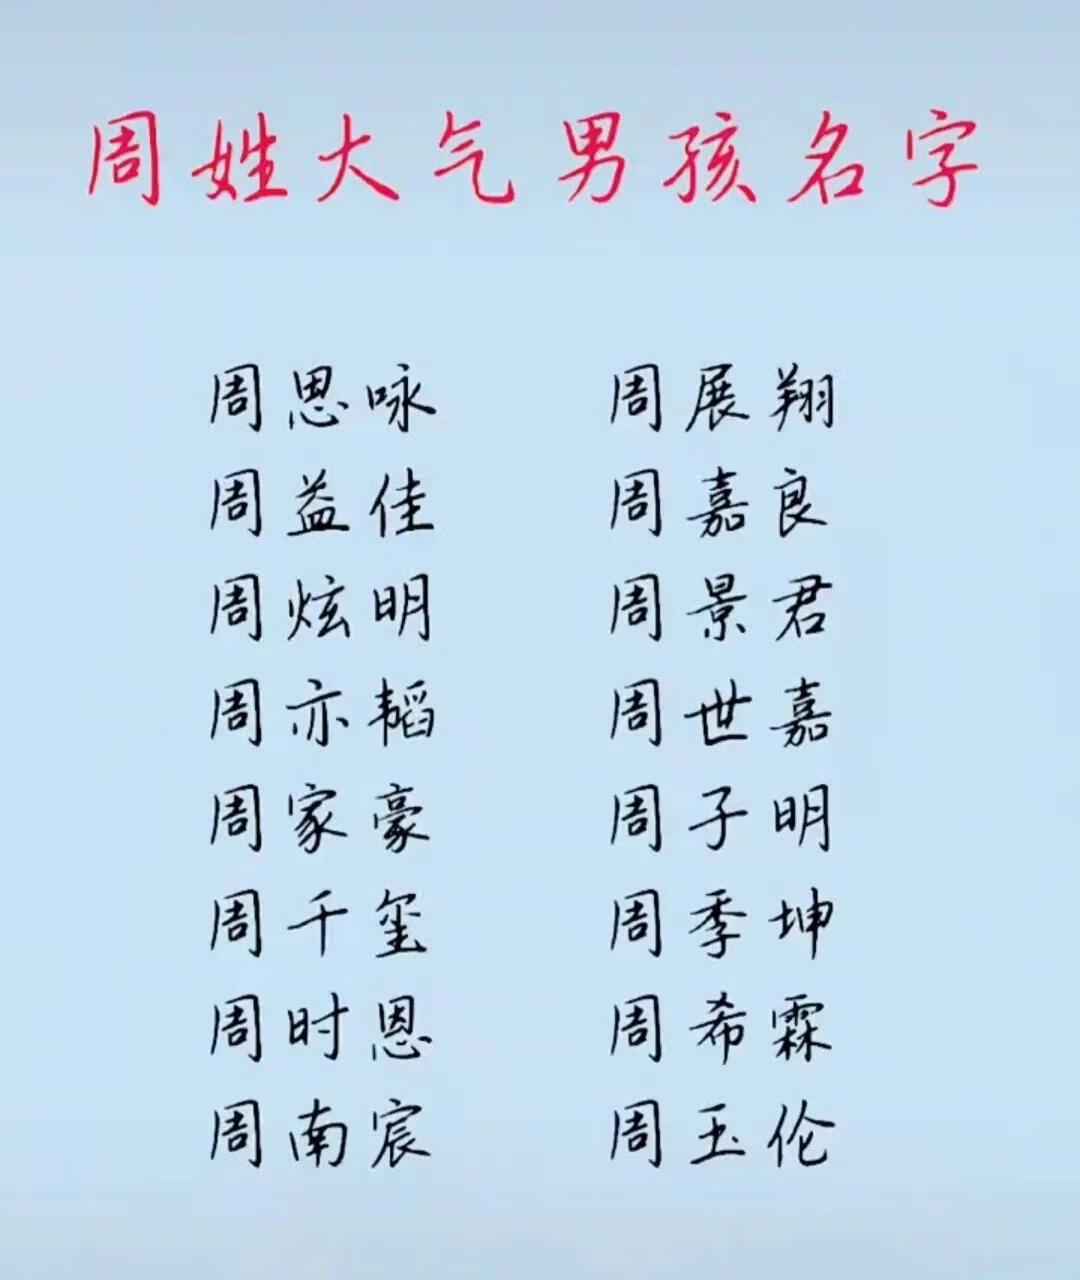 周姓大气男孩名字
周思咏 周展翔
周益佳 周嘉良
周炫明 周景君
周亦韬 周世嘉
周家豪 周子明
周千玺 周季坤
周时恩 周希霖
周南宸 周玉伦